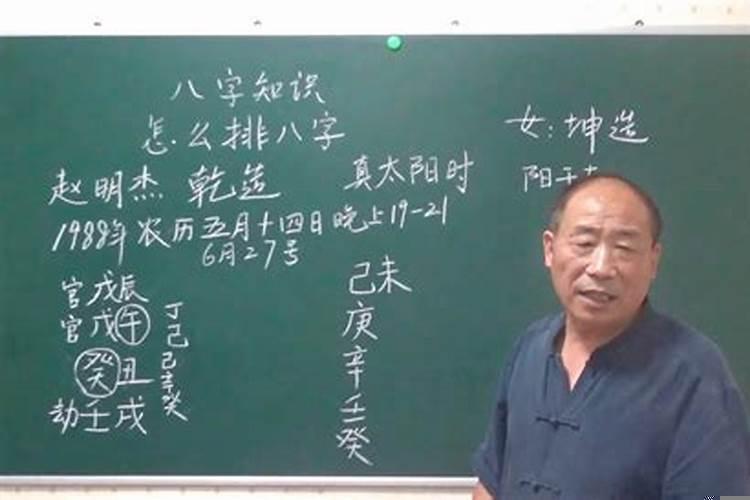 八字知识
怎么排八字
女:坤造
赵明杰 乾造 真太阳时
阳干
1988年农历五月十四日晚上19-21
6月27号
官戊辰
官戊午 丁己
癸丑 己辛癸
劫壬戌
己未
庚
辛
壬
癸